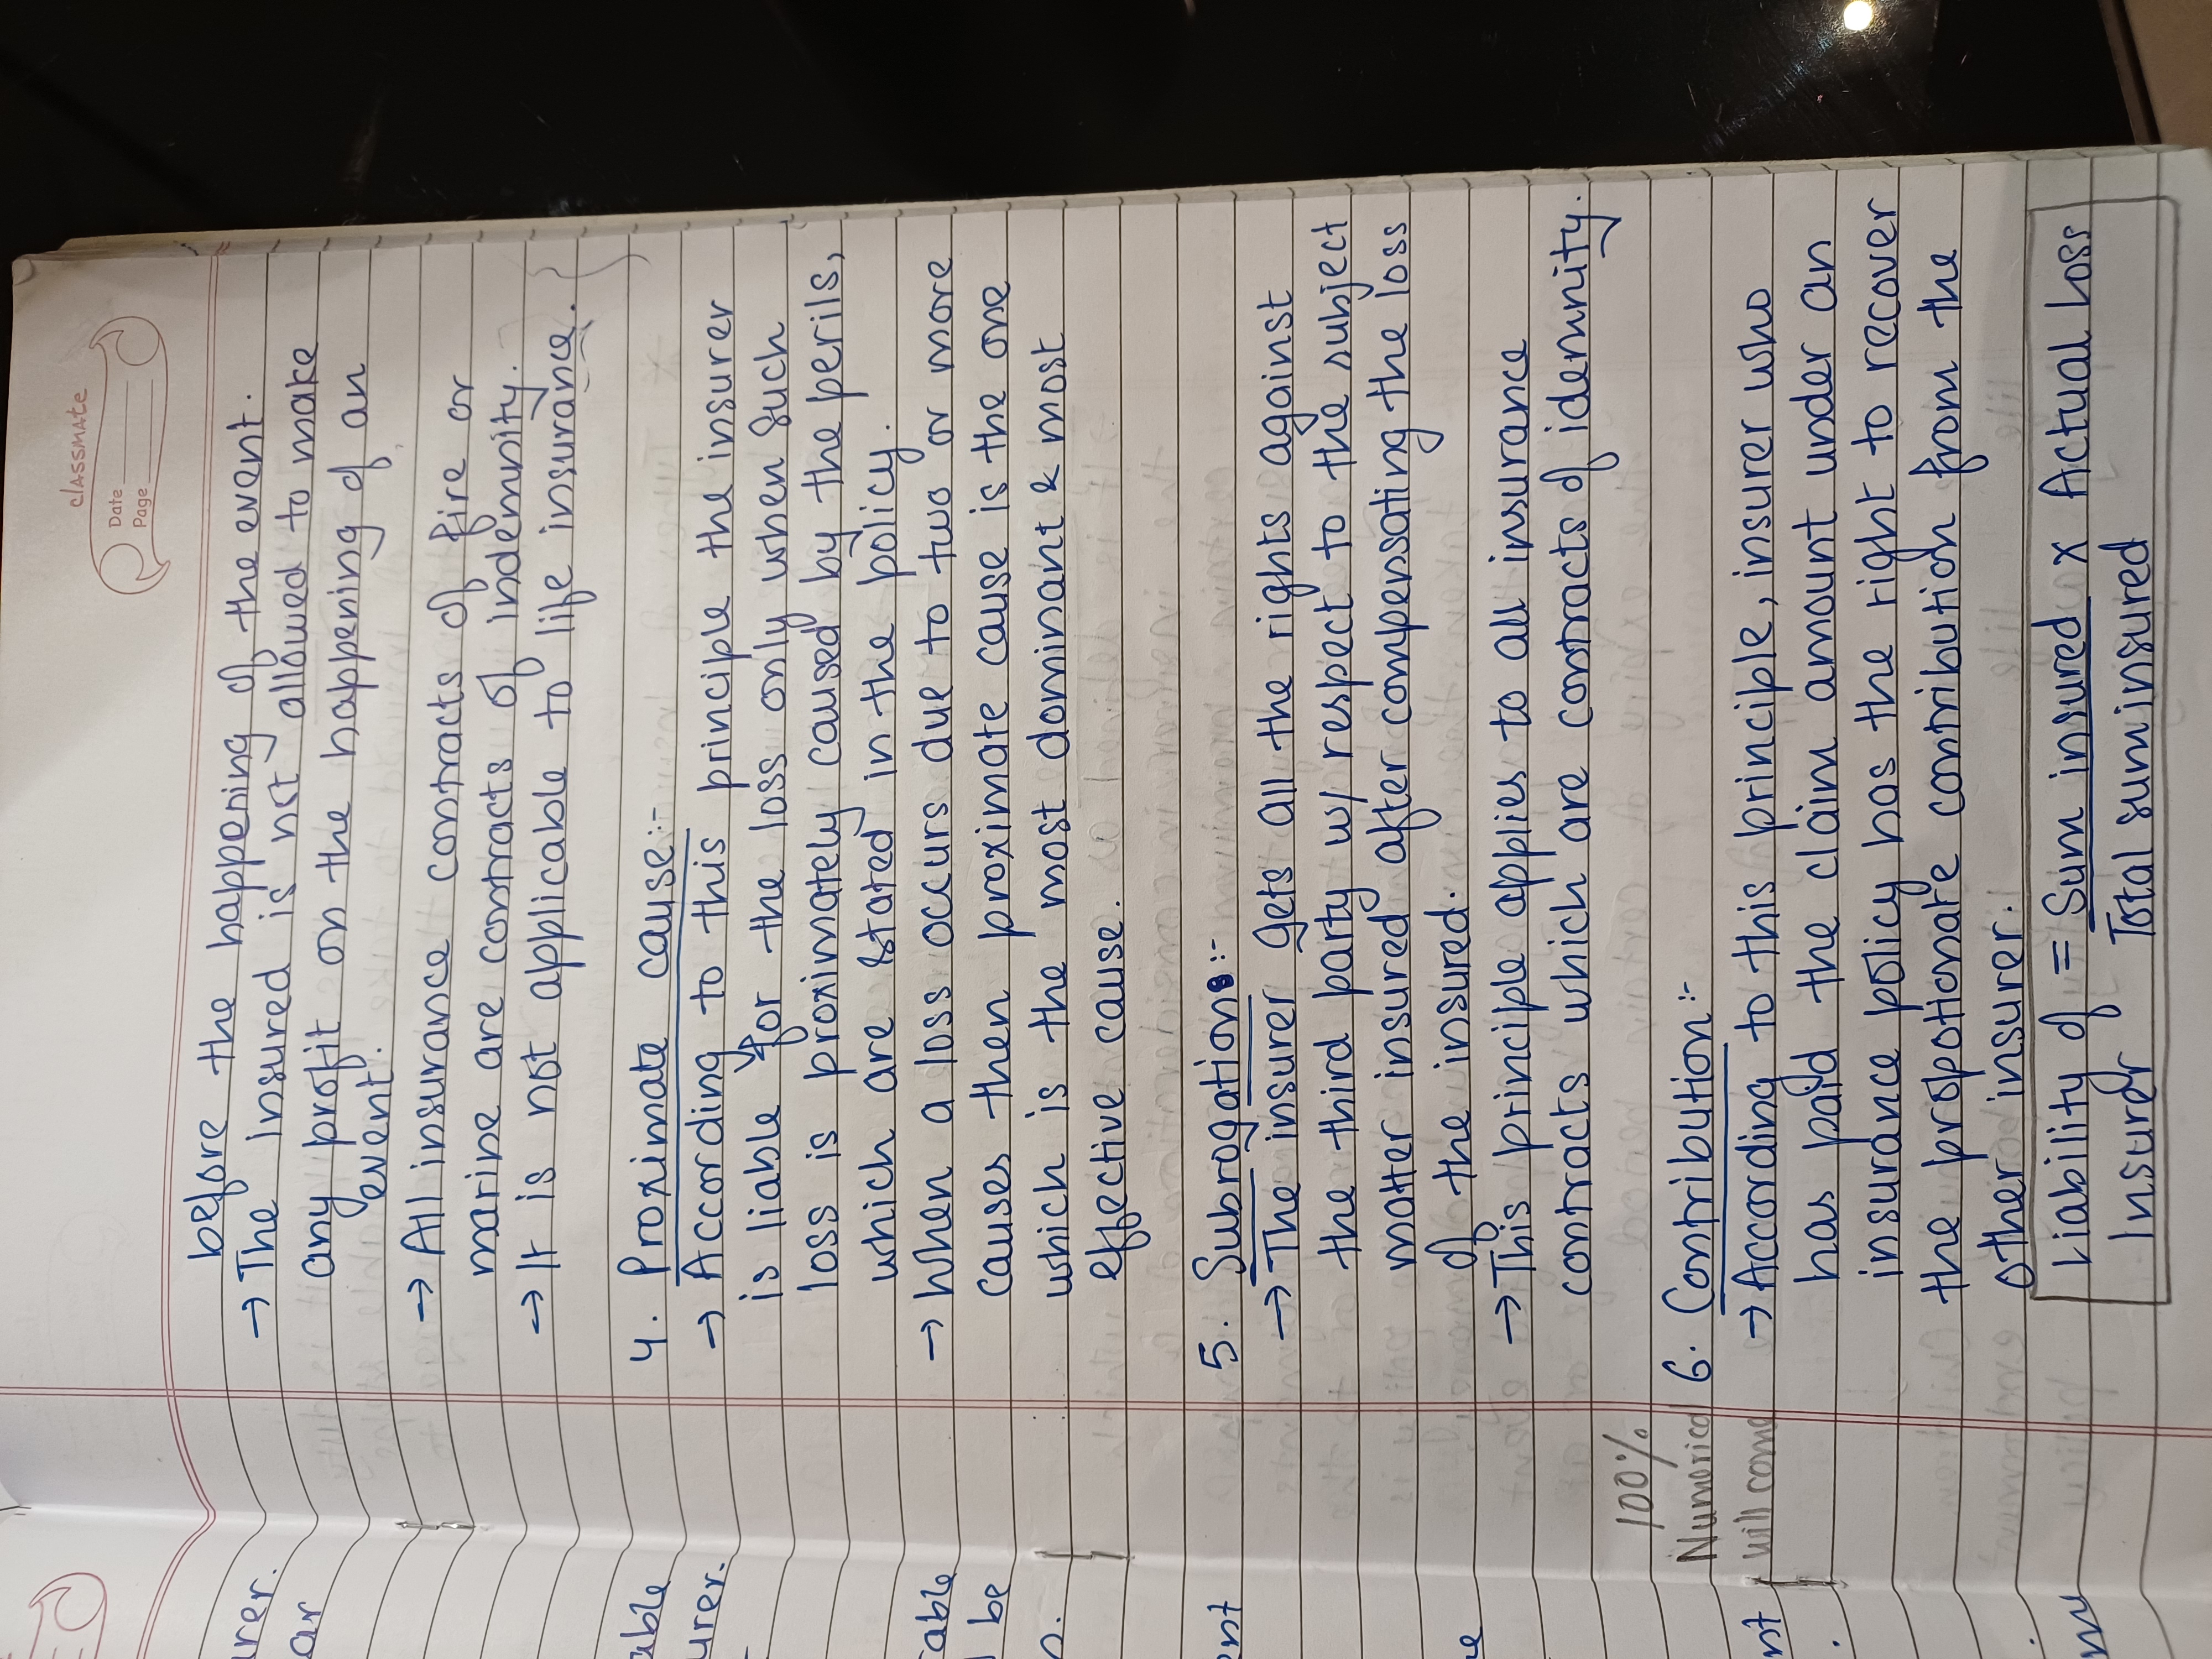 classmate
Date
Page
before the happening of the event.
→ The Insured is not allowed to make
any profit on the happening of an
event.
→ All insurance contracts of fire or
marine are contracts of indemnity.
→ It is not applicable to life insurance.
4. Proximate cause:-
→ According to this principle the insurer
is liable for the loss only when such
loss is proximately caused by the perils,
which are stated in the policy.
→ When a loss occurs due to two or more
causes then proximate cause is the one
which is the most dominant & most
effective cause.
5. Subrogation:-
→ The insurer gets all the rights against
the third party w/ respect to the subject
matter insured after compensating the loss
of the insured.
→ This principle applies to all insurance
contracts which are contracts of idemnity.
100%
Numerical
will come
6. Contribution:-
→ According to this principle, insurer who
has paid the claim amount under an
insurance policy has the right to recover
the propotionate contribution from the
other insurer.
Liability of = Sum insured x Actual Loss
Insurer Total sum insured
urer.
ar
able
urer.
able
be
n.
ent
ue
nt